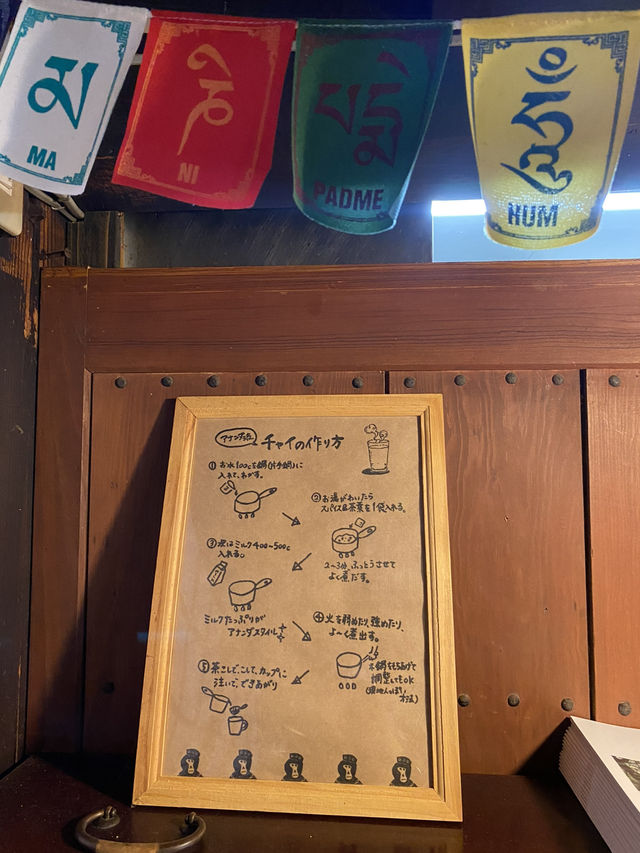 མ
MA
ནི
NI
པདྨེ
PADME
ཧཱུྃ
HUM
アナンダ流
チャイの作り方
① お水100ccを鍋(片手鍋)に
入れて、わかす。
② お湯がわいたら
スパイス&茶葉を1袋入れる。
2〜3分、ふっとうさせて
よく煮だす。
③ 次はミルク400〜500cc
入れる。
ミルクたっぷりが
アナンダスタイル
④ 火を弱めたり、強めたり、
よ〜く煮出す。
鍋をもちあげて
調整してもOK
⑤ 茶こしで、こして、カップに
注いで、できあがり